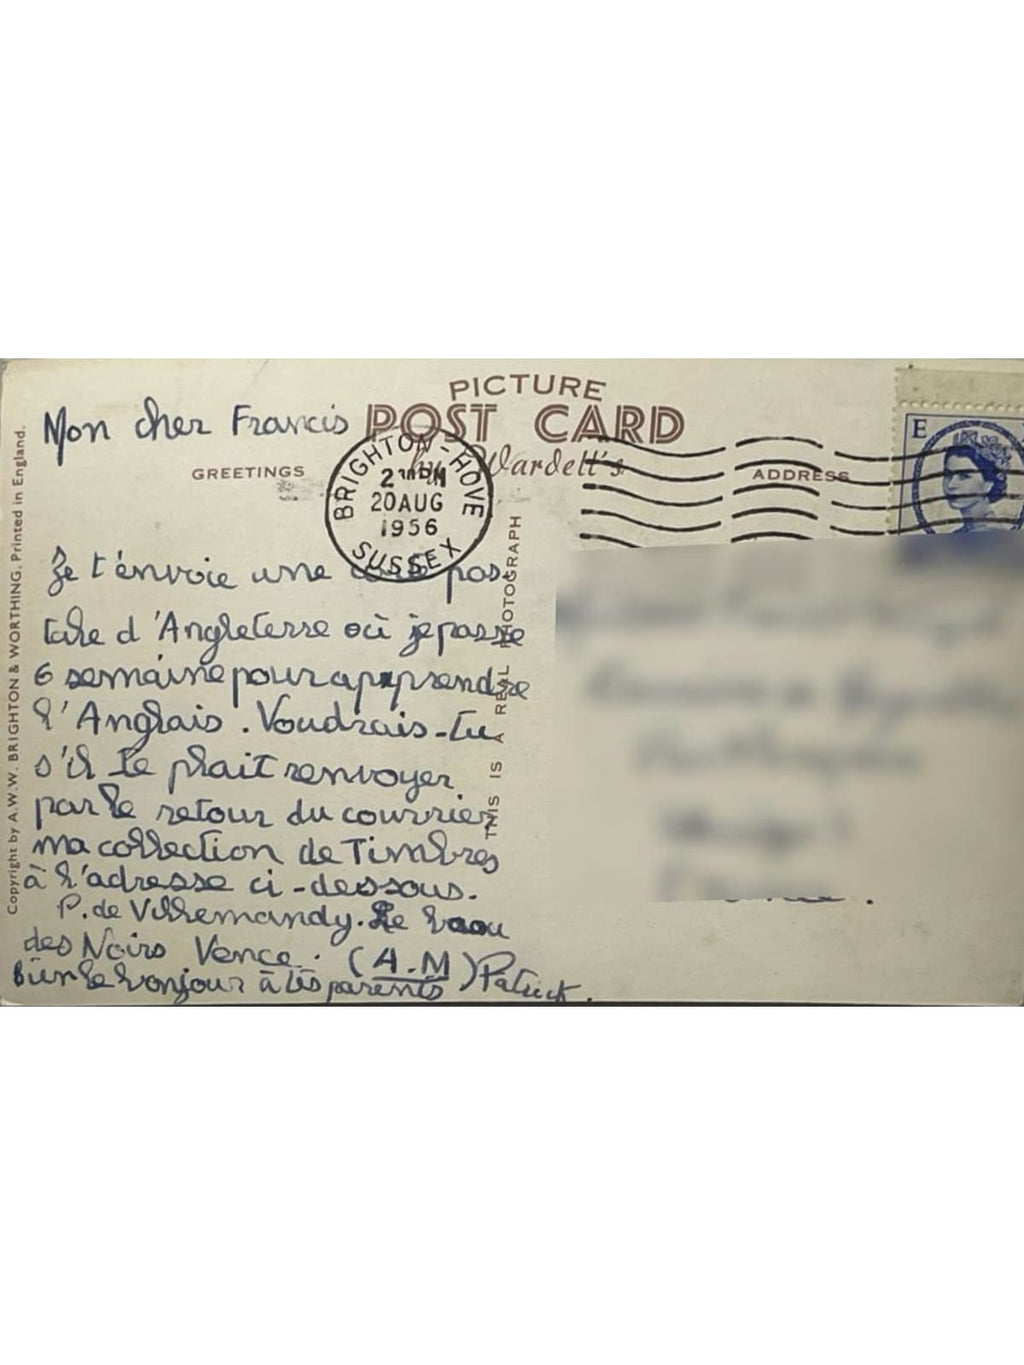 PICTURE
POST CARD
by Wardell's
Mon cher Francis
GREETINGS
ADDRESS
E
BRIGHTON-HOVE
20 AUG
1956
SUSSEX
Je t'envoie une carte pos-
tale d'Angleterre où je passe
6 semaine pour apprendre
l'Anglais. Voudrais-tu
s'il te plait renvoyer
par le retour du courrier
ma collection de Timbres
à l'adresse ci-dessous.
P. de Villemandy. Le baou
des Noirs Vence. (A.M)
bien le bonjour à tes parents Patrick.
THIS IS A REAL PHOTOGRAPH
Copyright by A.W.W. BRIGHTON & WORTHING. Printed in England.